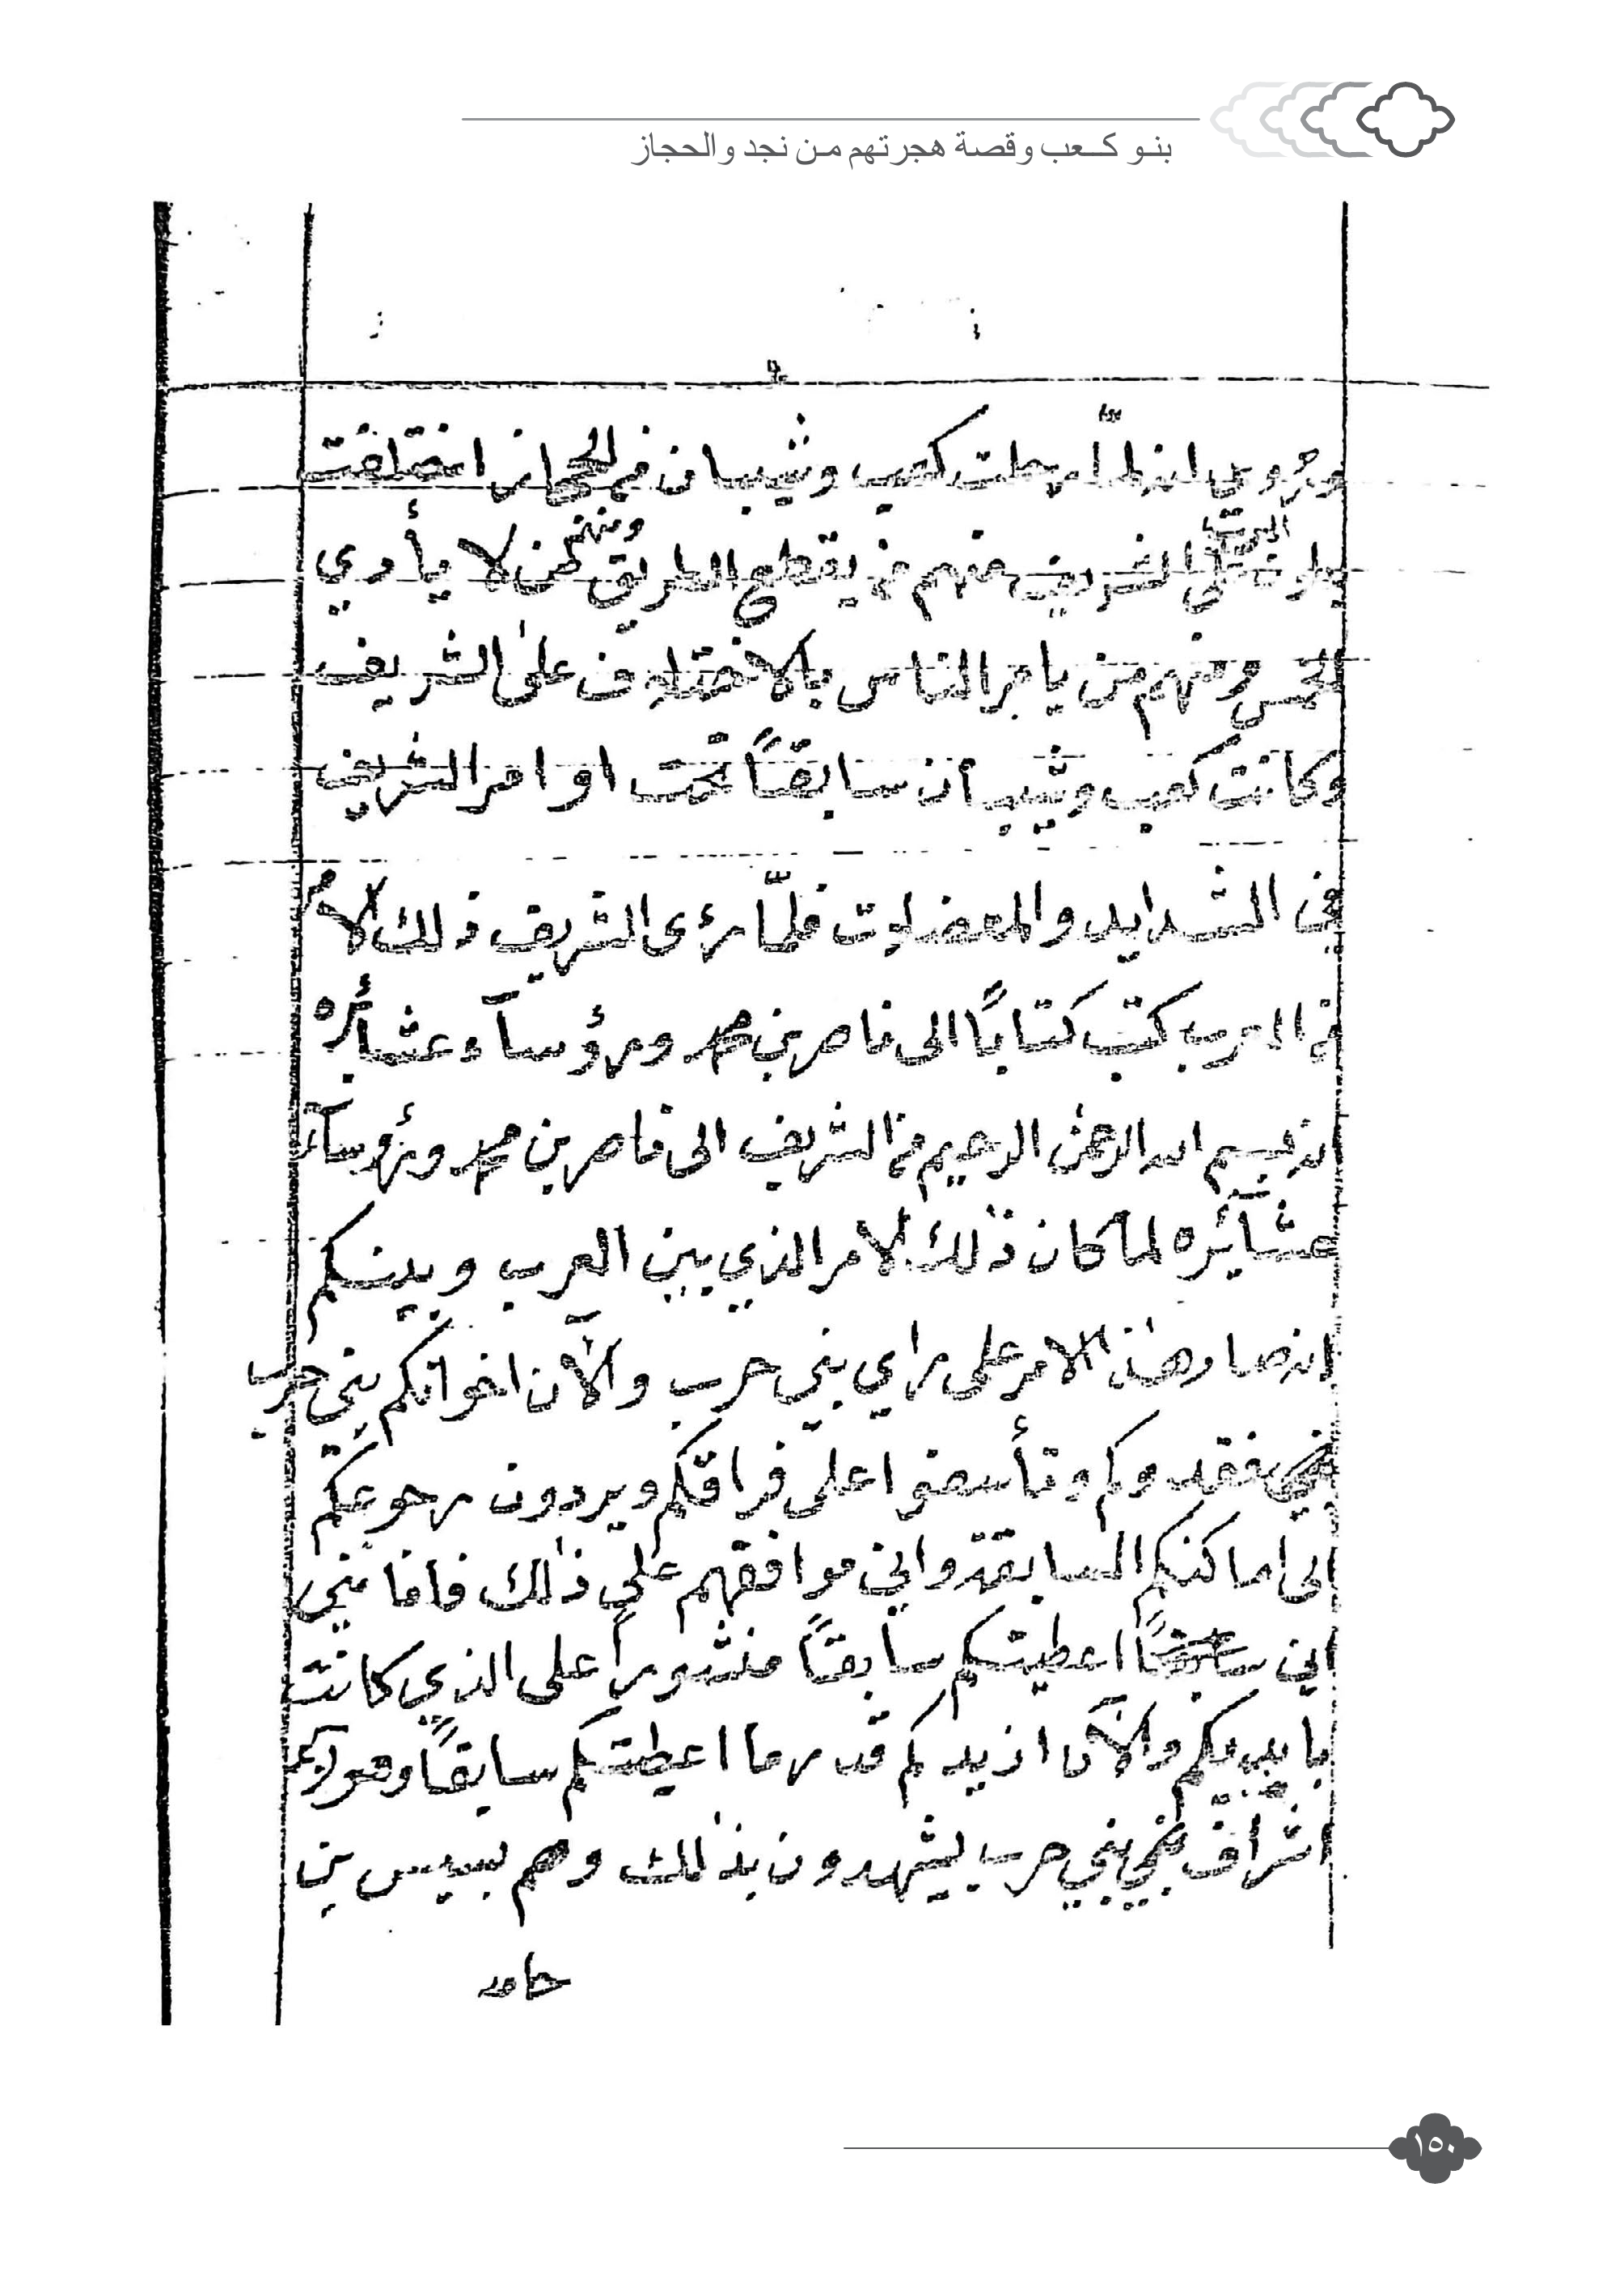 بنو كعب وقصة هجرتهم من نجد والحجاز
وروي انه لمّا رحلت كعب وشيبان من الحجاز اختلفت
العرب
على الشريف منهم من يقطع الطريق ومنهم من لا يأدي
الخمس ومنهم من يامر الناس بالاختلاف على الشريف
وكانت كعب وشيبان سابقاً تحت اوامر الشريف
في الشدايد والمعضلات فلمّا رئى الشريف ذلك الامر
من العرب كتب كتاباً الى ناصر بن محمد ورؤسآء عشائره
انه بسم الله الرحمن الرحيم من الشريف الى ناصر بن محمد ورؤسآء
عشآئره لما كان ذلك الامر الذي بين العرب وبينكم
انه صار هذا الامر على راي بني حرب والآن اخوانكم بني حرب
فقدوكم وتأسفوا على فراقكم ويردون رجوعكم
الى اماكنكم السابقة واني موافقهم على ذلك فانا
اني اعطيتكم سابقاً منشوراً على الذي كانت
بايديكم والآن ازيدكم قدر ما اعطيتكم سابقاً وهولآء
اشراف بني حرب يشهدون بذلك وهم بن
حامد
١٥٠